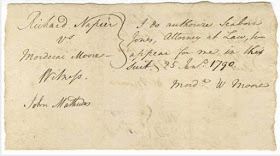 Richard Napier
vs
Mordecai Moore
Witness.
John Mathews
I do authorize Seaborn
Jones, Attorney at Law, to
appear for me in this
Suit 25 Jany. 1790
Mord.a W Moore